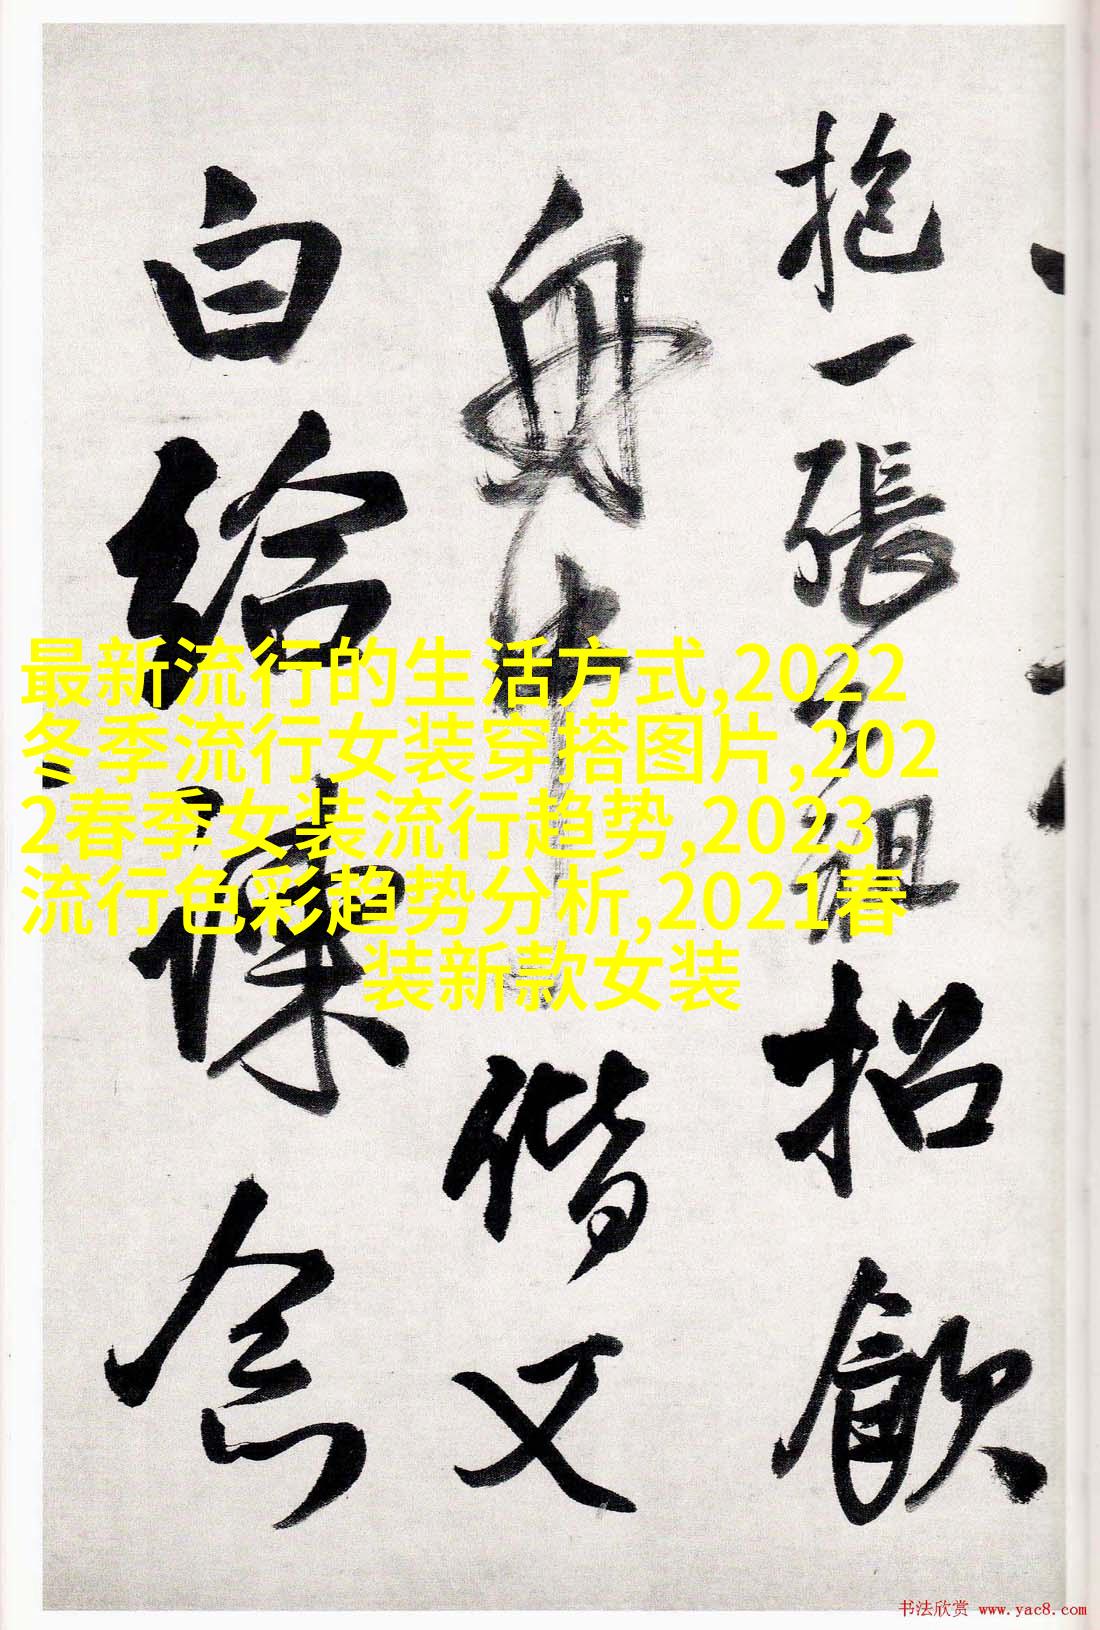 抱一張子祖招飲
舟中偕文
白給諫念
最新流行的生活方式,2022
冬季流行女装穿搭图片,202
2春季女装流行趋势,2023
流行色彩趋势分析,2021春
装新款女装
书法欣赏 www.yac8.com